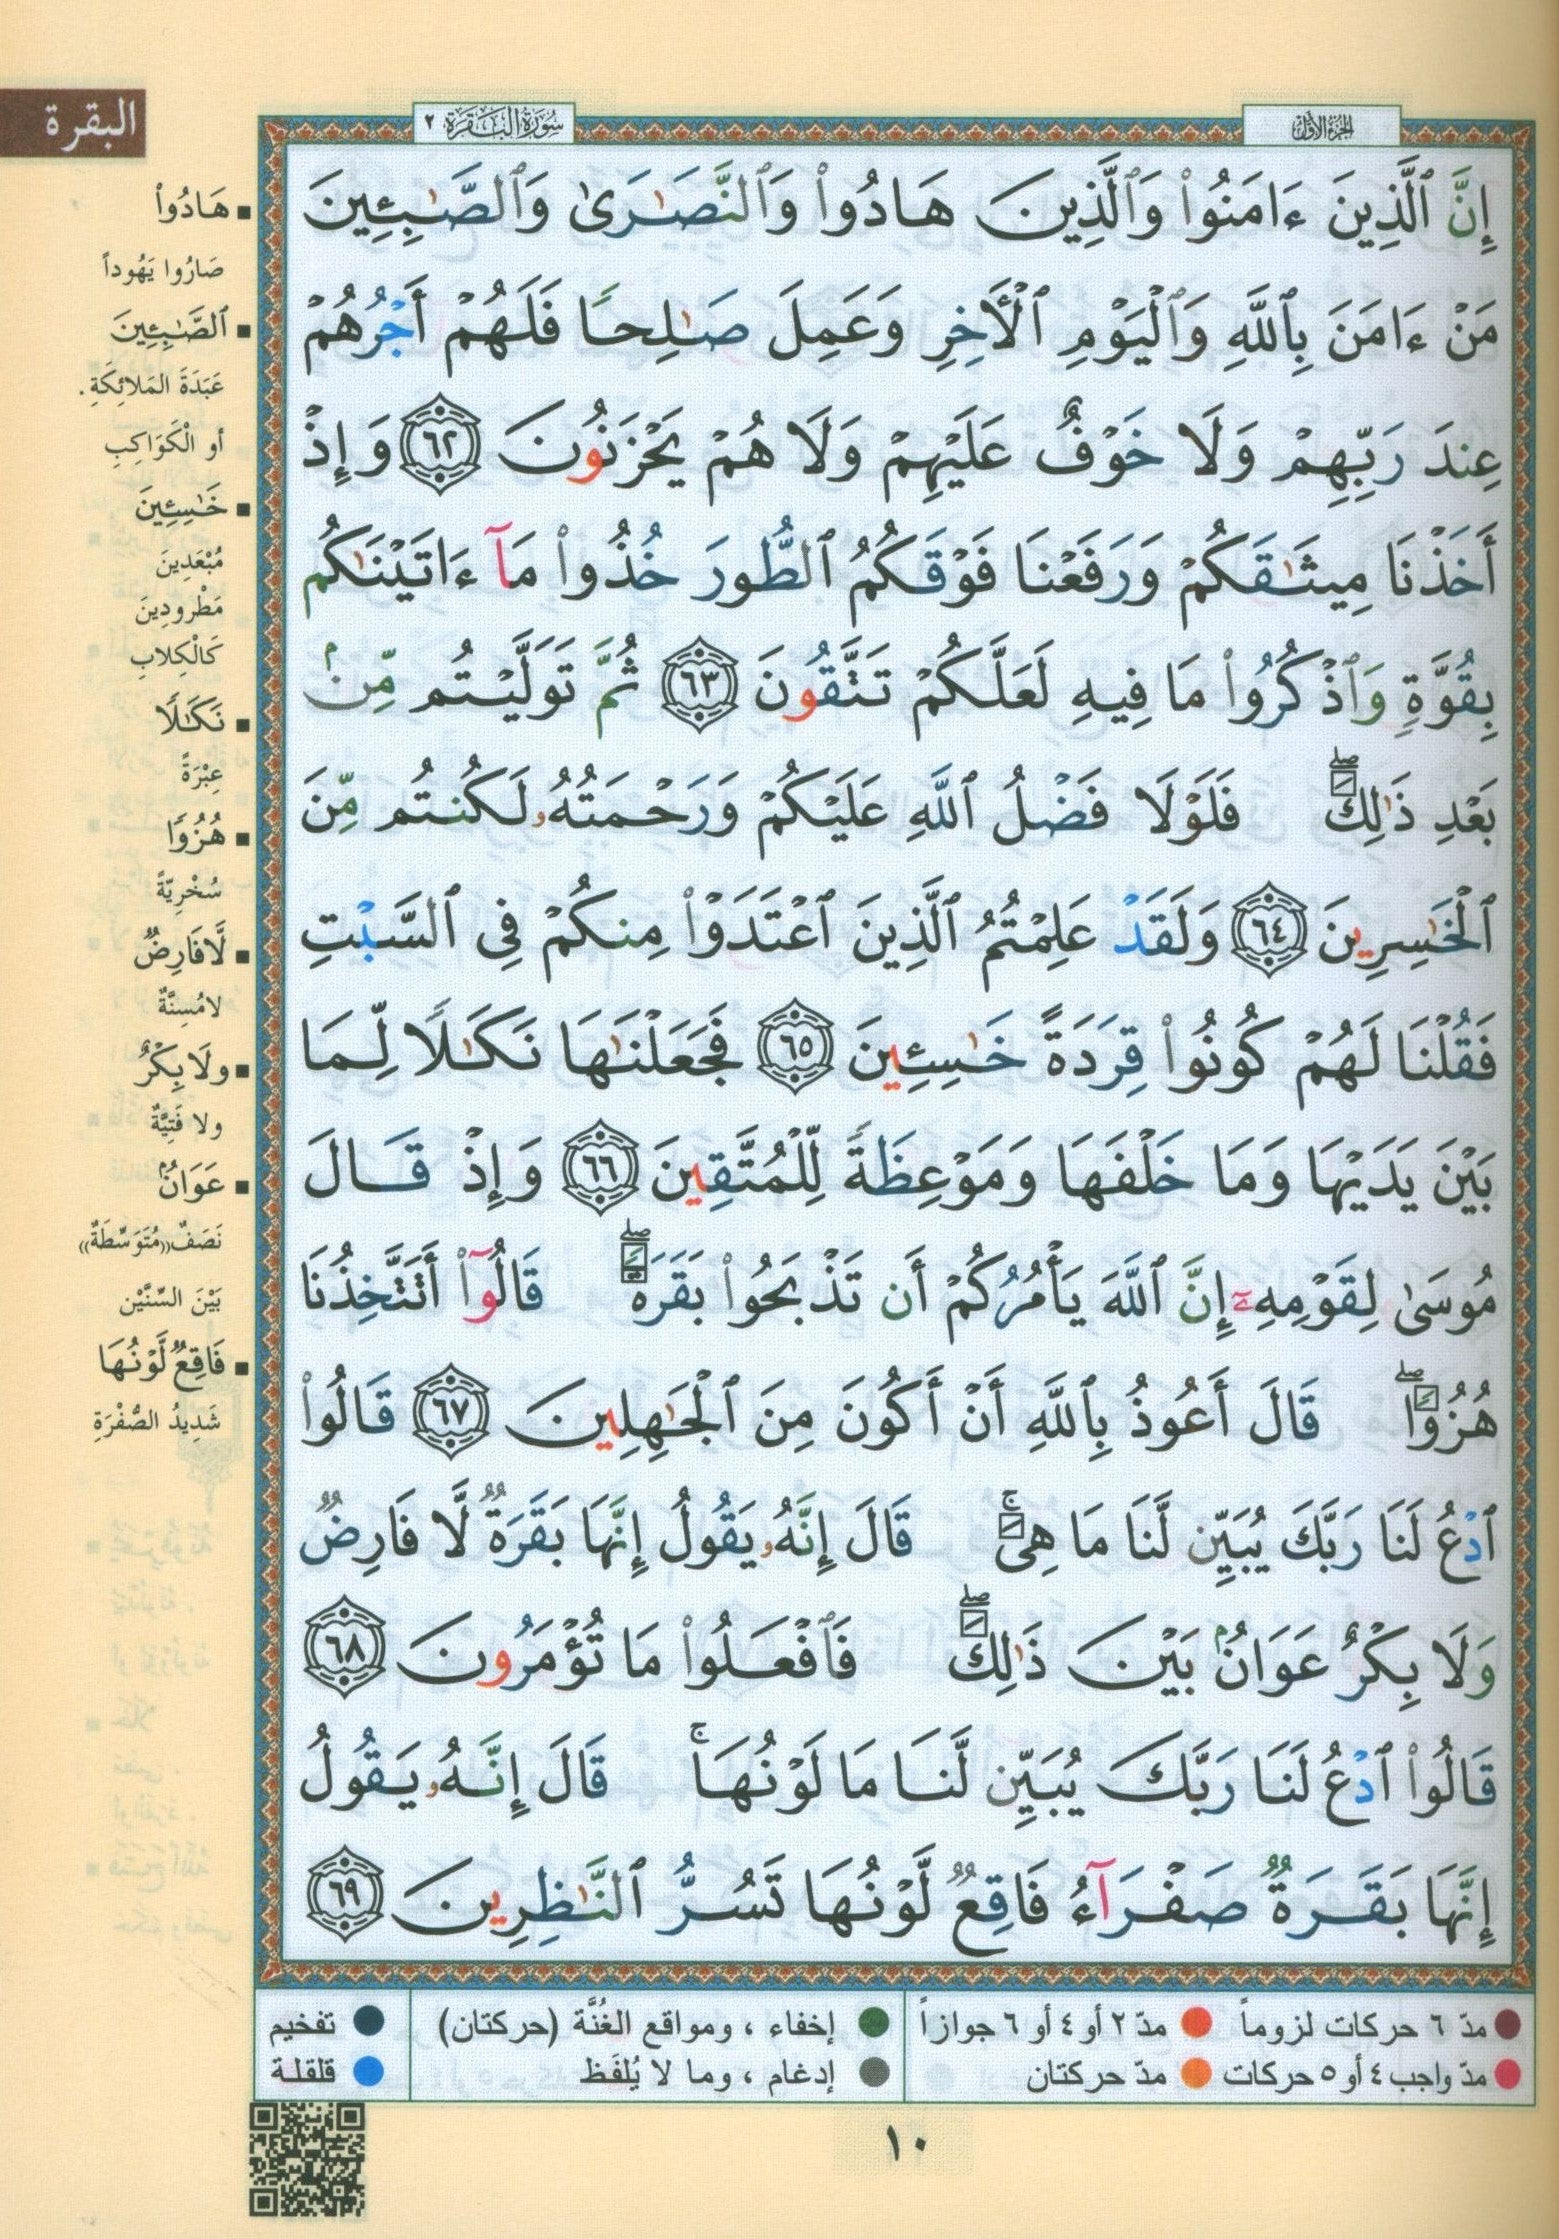 الجزء الأول
سورة البقرة ٢
البقرة
إِنَّ ٱلَّذِينَ ءَامَنُوا۟ وَٱلَّذِينَ هَادُوا۟ وَٱلنَّصَٰرَىٰ وَٱلصَّٰبِـِٔينَ
مَنْ ءَامَنَ بِٱللَّهِ وَٱلْيَوْمِ ٱلْـَٔاخِرِ وَعَمِلَ صَٰلِحًا فَلَهُمْ أَجْرُهُمْ
عِندَ رَبِّهِمْ وَلَا خَوْفٌ عَلَيْهِمْ وَلَا هُمْ يَحْزَنُونَ ٦٢ وَإِذْ
أَخَذْنَا مِيثَٰقَكُمْ وَرَفَعْنَا فَوْقَكُمُ ٱلطُّورَ خُذُوا۟ مَآ ءَاتَيْنَٰكُم
بِقُوَّةٍ وَٱذْكُرُوا۟ مَا فِيهِ لَعَلَّكُمْ تَتَّقُونَ ٦٣ ثُمَّ تَوَلَّيْتُم مِّنۢ
بَعْدِ ذَٰلِكَ ۖ فَلَوْلَا فَضْلُ ٱللَّهِ عَلَيْكُمْ وَرَحْمَتُهُۥ لَكُنتُم مِّنَ
ٱلْخَٰسِرِينَ ٦٤ وَلَقَدْ عَلِمْتُمُ ٱلَّذِينَ ٱعْتَدَوْا۟ مِنكُمْ فِى ٱلسَّبْتِ
فَقُلْنَا لَهُمْ كُونُوا۟ قِرَدَةً خَٰسِـِٔينَ ٦٥ فَجَعَلْنَٰهَا نَكَٰلًا لِّمَا
بَيْنَ يَدَيْهَا وَمَا خَلْفَهَا وَمَوْعِظَةً لِّلْمُتَّقِينَ ٦٦ وَإِذْ قَالَ
مُوسَىٰ لِقَوْمِهِۦٓ إِنَّ ٱللَّهَ يَأْمُرُكُمْ أَن تَذْبَحُوا۟ بَقَرَةً ۖ قَالُوٓا۟ أَتَتَّخِذُنَا
هُزُوًا ۖ قَالَ أَعُوذُ بِٱللَّهِ أَنْ أَكُونَ مِنَ ٱلْجَٰهِلِينَ ٦٧ قَالُوا۟
ٱدْعُ لَنَا رَبَّكَ يُبَيِّن لَّنَا مَا هِىَ ۚ قَالَ إِنَّهُۥ يَقُولُ إِنَّهَا بَقَرَةٌ لَّا فَارِضٌ
وَلَا بِكْرٌ عَوَانٌۢ بَيْنَ ذَٰلِكَ ۖ فَٱفْعَلُوا۟ مَا تُؤْمَرُونَ ٦٨
قَالُوا۟ ٱدْعُ لَنَا رَبَّكَ يُبَيِّن لَّنَا مَا لَوْنُهَا ۚ قَالَ إِنَّهُۥ يَقُولُ
إِنَّهَا بَقَرَةٌ صَفْرَآءُ فَاقِعٌ لَّوْنُهَا تَسُرُّ ٱلنَّٰظِرِينَ ٦٩
هَادُوا۟
صَارُوا يَهُوداً
ٱلصَّٰبِـِٔينَ
عَبَدَةَ المَلائِكَةِ.
أو الْكَوَاكِبِ
خَٰسِـِٔينَ
مُبْعَدِينَ
مَطْرودِينَ
كَالْكِلابِ
نَكَٰلًا
عِبْرَةً
هُزُوًا
سُخْرِيّةً
لَّا فَارِضٌ
لا مُسِنَّةٌ
ولَا بِكْرٌ
ولا فَتِيَّةٌ
عَوَانٌۢ
نَصَفٌ((مُتَوَسِّطَةٌ))
بَيْنَ السِّنَّيْن
فَاقِعٌ لَّوْنُهَا
شَدِيدُ الصُّفْرَةِ
مدّ ٦ حركات لزوماً مدّ ٢ أو ٤ أو ٦ جوازاً إخفاء ، ومواقع الغُنَّة (حركتان) تفخيم
مدّ واجب ٤ أو ٥ حركات مدّ حركتان إدغام ، وما لا يُلفَظ قلقلة
١٠